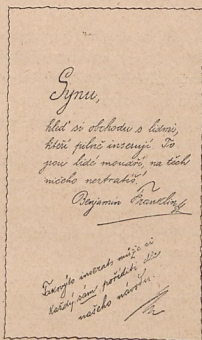 Synu,
hleď si obchodu s lidmi,
kteří pilně inserují. To
jsou lidé moudří, na těch
ničeho neztratíš!
Benjamin Franklin
Takovýto inserát může si
každý sám poříditi dle
našeho návodu.